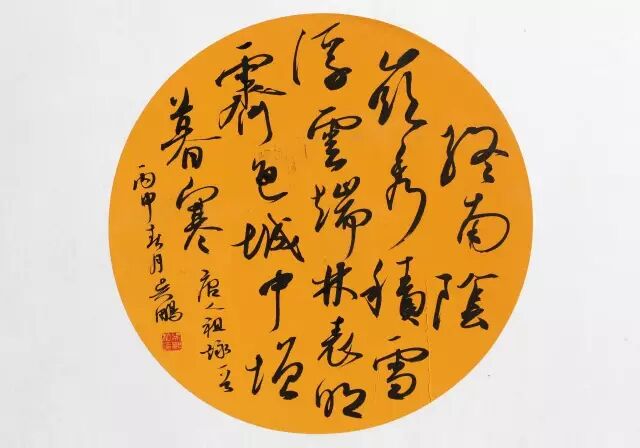 終南陰
嶺秀積雪
浮雲端林表明
霽色城中增
暮寒 唐人祖詠
丙申月吴鵬